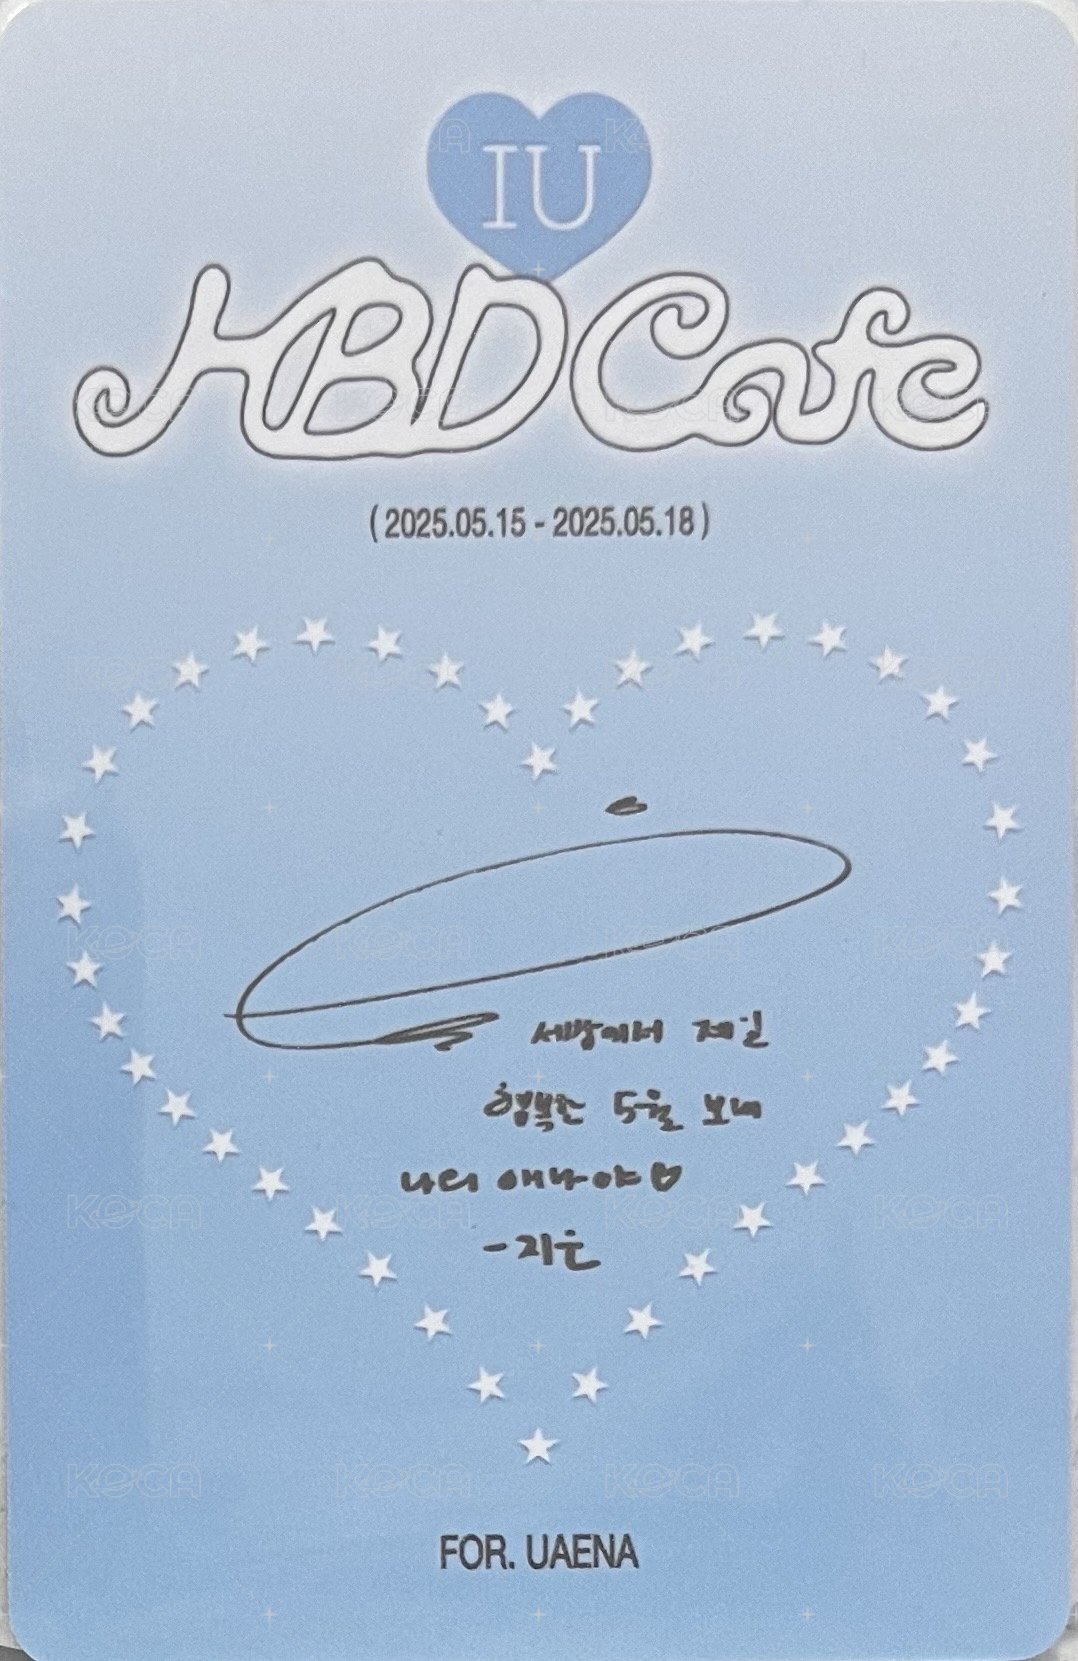 IU
HBD Cafe
(2025.05.15 - 2025.05.18)
세상에서 제일
행복한 5월 보내
나의 애나야♡
-지은
FOR. UAENA